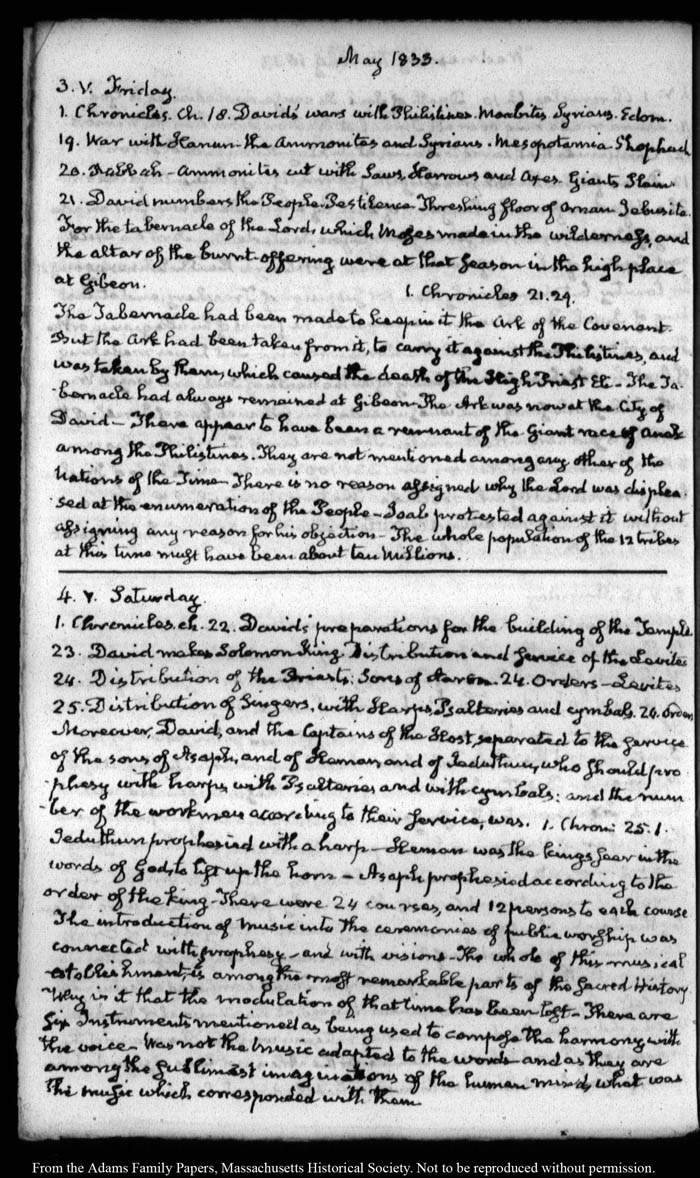 May 1833.
3. V. Friday.
1. Chronicles. Ch. 18. Davids' wars with Philistines. Moabites Syrians. Edom.
19. War with Hanun the Ammonites and Syrians. Mesopotamia Shophach
20. Rabbah - Ammonites cut with Saws, Harrows and Axes. Giants Slain
21. David numbers the People. Pestilence. Threshing floor of Ornan Jebusite.
For the tabernacle of the Lord, which Moses made in the wilderness, and
the altar of the burnt-offering were at that season in the high place
at Gibeon.
1. Chronicles 21.29.
The Tabernacle had been made to keep in it the Ark of the Covenant.
But the Ark had been taken from it, to carry it against the Philistines, and
was taken by them, which caused the death of the High Priest Eli - The Ta-
-bernacle had always remained at Gibeon - The Ark was now at the City of
David - There appear to have been a remnant of the Giant race of Anak
among the Philistines. They are not mentioned among any other of the
Nations of the Time - There is no reason assigned why the Lord was displea-
-sed at the enumeration of the People - Joab protested against it without
assigning any reason for his objection - The whole population of the 12 tribes
at this time must have been about ten Millions.
4. V. Saturday.
1. Chronicles. ch. 22. David's preparations for the building of the Temple
23. David makes Solomon King. Distribution and service of the Levites
24. Distribution of the Priests: Sons of Aaron. 24. Orders - Levites
25. Distribution of Singers, with Harps, Psalteries and cymbals. 24. orders
Moreover, David, and the Captains of the Host, separated to the service
of the sons of Asaph, and of Heman, and of Jeduthun, who should pro-
-phesy with harps, with Psalteries and with cymbals: and the num-
-ber of the workmen according to their service, was. 1. Chron: 25.1.
Jeduthun prophesied with a harp - Heman was the kings seer in the
words of God, to lift up the horn - Asaph prophesied according to the
order of the king - There were 24 courses, and 12 persons to each course
The introduction of music into the ceremonies of public worship was
connected with prophesy - and with visions - The whole of this musical
establishment, is among the most remarkable parts of the Sacred History.
Why is it that the modulation of that time has been lost - There are
six Instruments mentioned as being used to compose the harmony with
the voice - Was not the music adapted to the words - and as they are
among the sublimest imaginations of the human mind, what was
the music which corresponded with them
From the Adams Family Papers, Massachusetts Historical Society. Not to be reproduced without permission.